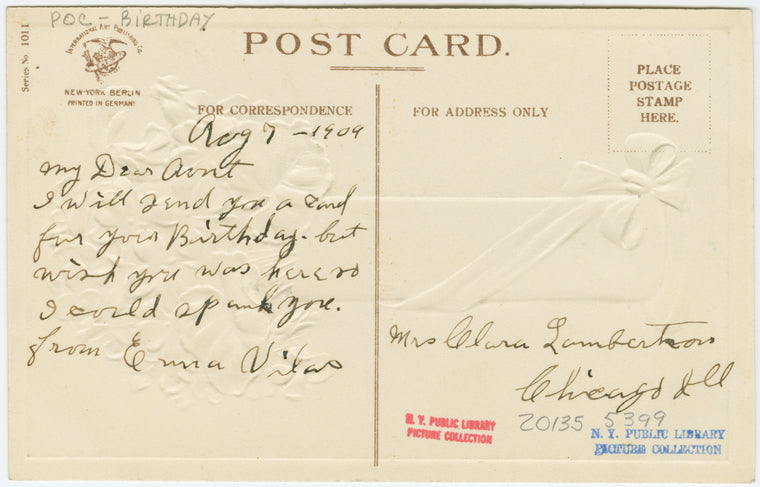 POC - BIRTHDAY
Series No 1011
International Art Publishing Co.
NEW-YORK BERLIN
PRINTED IN GERMANY
POST CARD.
PLACE
POSTAGE
STAMP
HERE.
FOR CORRESPONDENCE
FOR ADDRESS ONLY
Aug 7 - 1909
My Dear Aunt
I will send you a card
for your Birthday. but
wish you was here so
I could spank you.
from Emma Vilas
Mrs Clara Lambertson
Chicago Ill
N. Y. PUBLIC LIBRARY
PICTURE COLLECTION
20135 5399
N. Y. PUBLIC LIBRARY
PICTURE COLLECTION